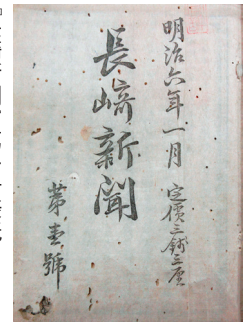 明治六年一月 定價三錢三厘
長崎新聞
第壹號